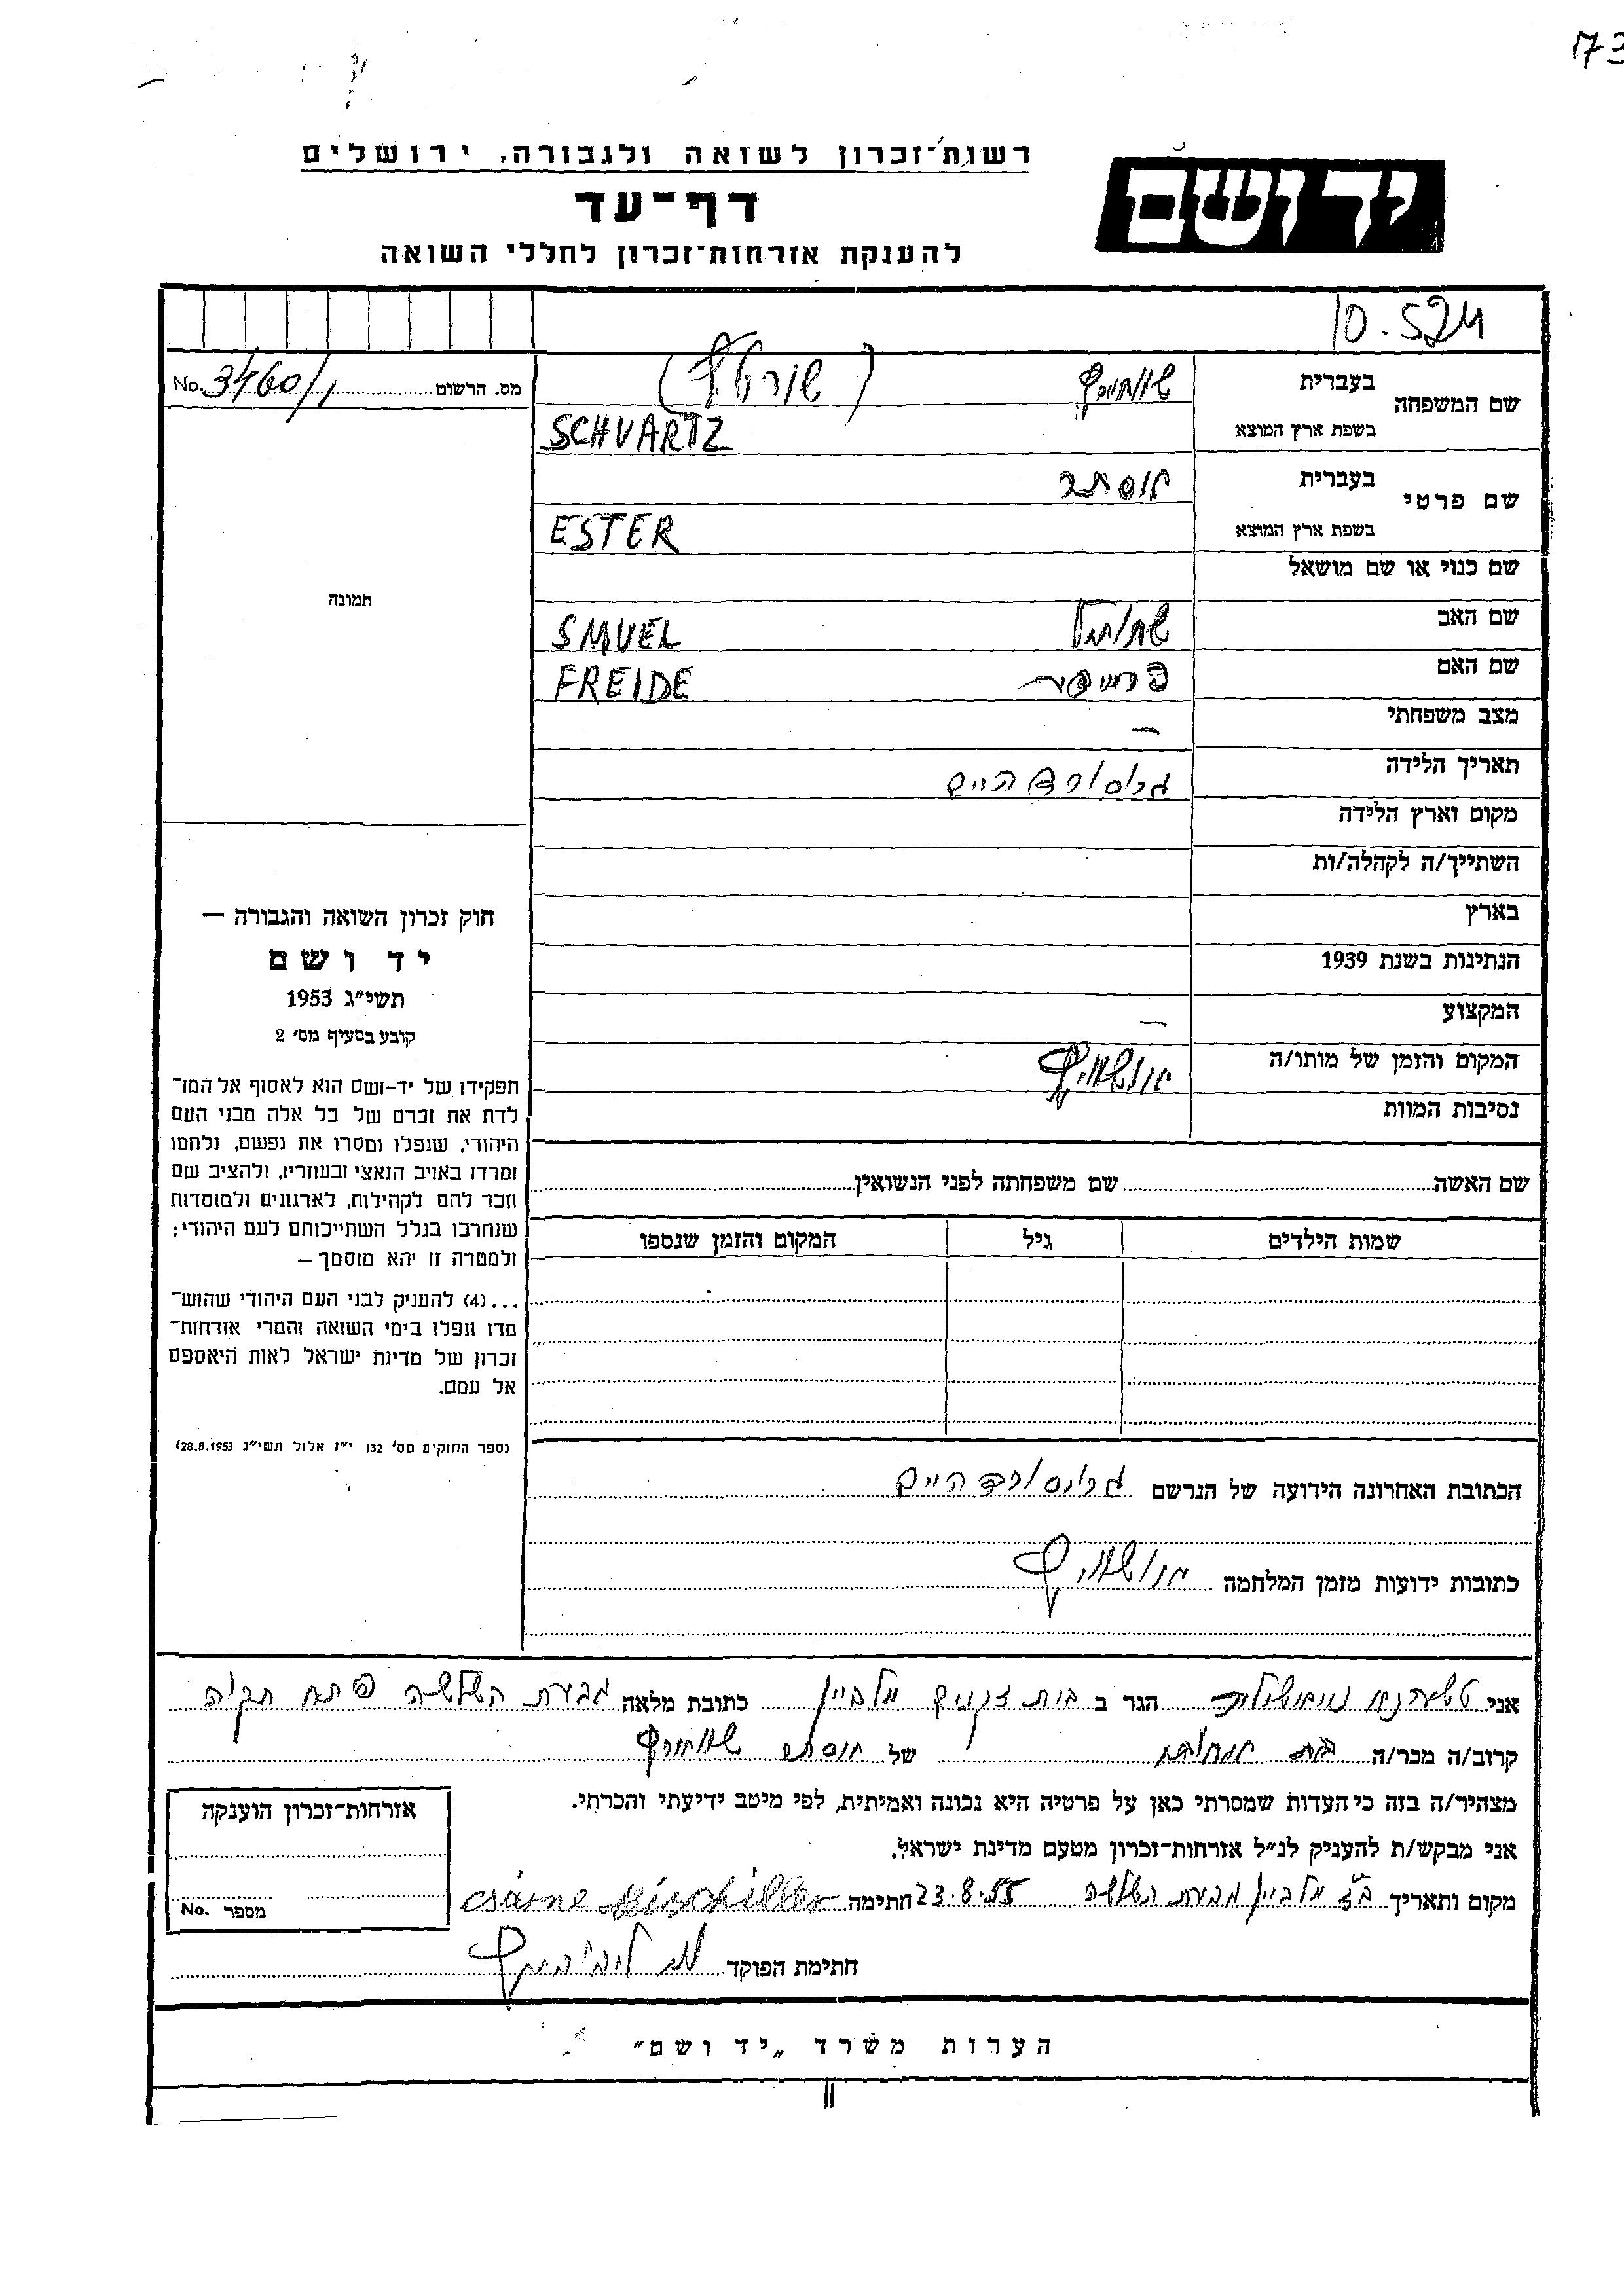 173
רשות־זכרון לשואה ולגבורה, ירושלים
יד ושם
דף־עד
להענקת אזרחות־זכרון לחללי השואה
10.524
שם המשפחה
בעברית
שווארץ (שורץ)
בשפת ארץ המוצא
SCHVARTZ
מס. הרשום No. 3460/1
שם פרטי
בעברית
אסתר
בשפת ארץ המוצא
ESTER
שם כנוי או שם מושאל
תמונה
שם האב שמואל SMUEL
שם האם פריידע FREIDE
מצב משפחתי —
תאריך הלידה
גרוסורדהיים
מקום וארץ הלידה
השתייך/ה לקהלה/ות
בארץ
הנתינות בשנת 1939
המקצוע —
המקום והזמן של מותו/ה אושוויץ
נסיבות המוות
חוק זכרון השואה והגבורה —
יד ושם
תשי״ג 1953
קובע בסעיף מס׳ 2
תפקידו של יד-ושם הוא לאסוף אל המו־
לדת את זכרם של כל אלה מבני העם
היהודי, שנפלו ומסרו את נפשם, נלחמו
ומרדו באויב הנאצי ובעוזריו, ולהציב שם
וזכר להם לקהילות, לארגונים ולמוסדות
שנחרבו בגלל השתייכותם לעם היהודי;
ולמטרה זו יהא מוסמך —
...(4) להעניק לבני העם היהודי שהוש־
מדו ונפלו בימי השואה והמרי אזרחות־
זכרון של מדינת ישראל לאות היאספם
אל עמם.
(ספר החוקים מס׳ 132 י״ז אלול תשי״ג 28.8.1953)
שם האשה שם משפחתה לפני הנשואין
שמות הילדים גיל המקום והזמן שנספו
הכתובת האחרונה הידועה של הנרשם גרוסורדהיים
כתובות ידועות מזמן המלחמה אושוויץ
אני הגר ב בית זקנים מלביין כתובת מלאה גבעת השלשה פתח תקוה
קרוב/ה מכר/ה בת של אסתר שווארץ
מצהיר/ה בזה כי העדות שמסרתי כאן על פרטיה היא נכונה ואמיתית, לפי מיטב ידיעתי והכרתי.
אני מבקש/ת להעניק לנ״ל אזרחות־זכרון מטעם מדינת ישראל.
מקום ותאריך ב״ז מלביין גבעת השלשה 23.8.55 חתימה
חתימת הפוקד
אזרחות־זכרון הוענקה
מספר No.
הערות משרד „יד ושם״